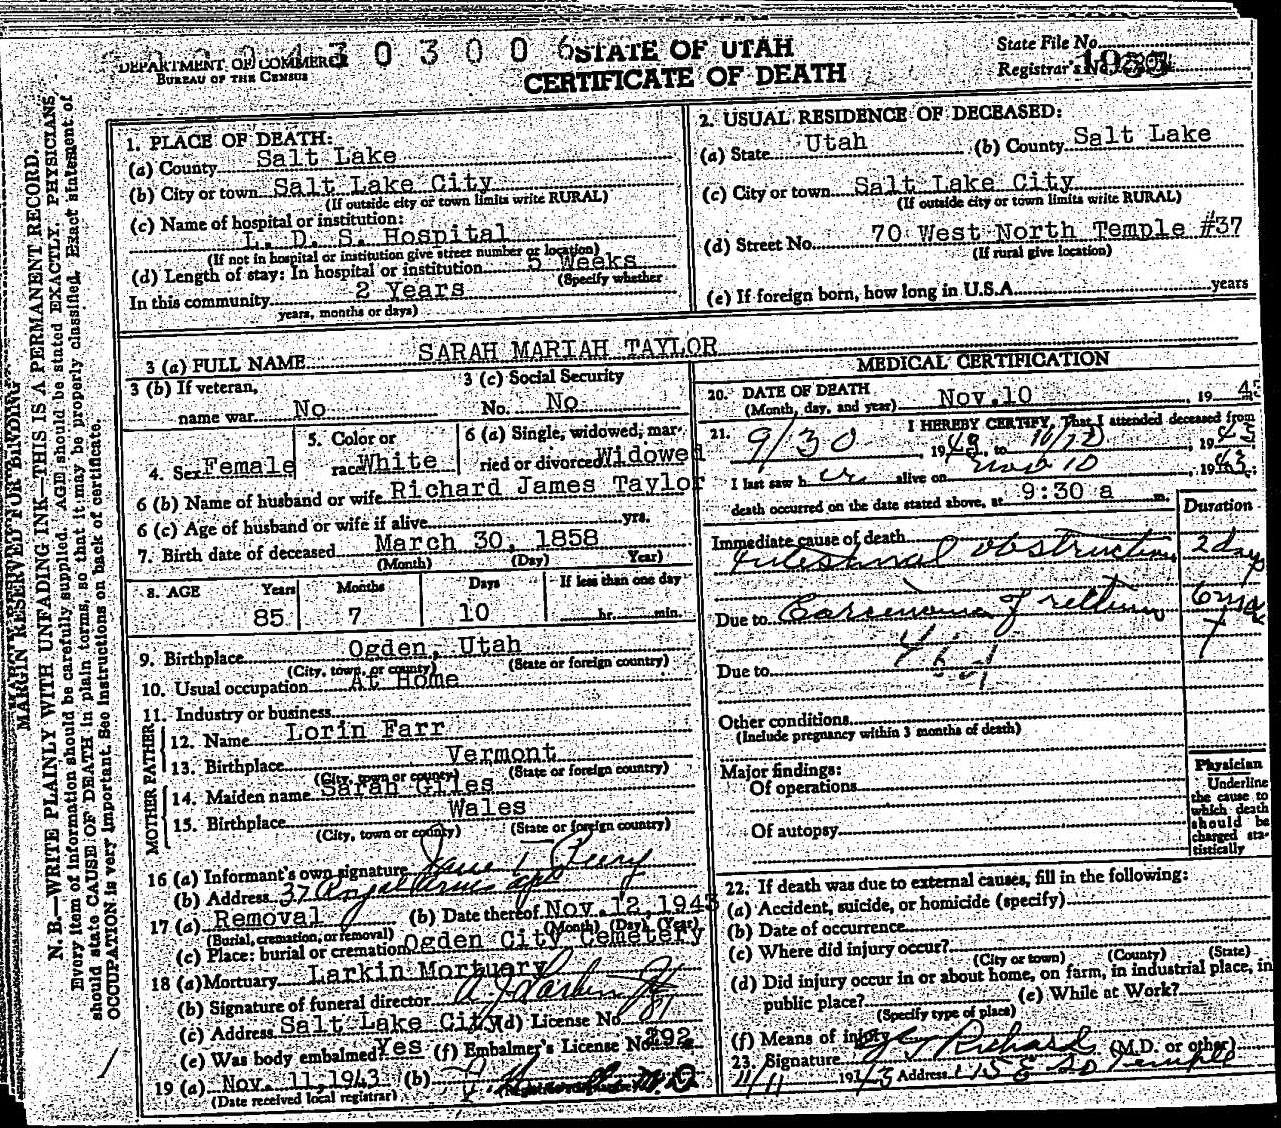 30300 6
DEPARTMENT OF COMMERCE
BUREAU OF THE CENSUS
STATE OF UTAH
CERTIFICATE OF DEATH
State File No.
Registrar's No.
MARGIN RESERVED FOR BINDING
N. B.—WRITE PLAINLY WITH UNFADING INK—THIS IS A PERMANENT RECORD.
Every item of information should be carefully supplied. AGE should be stated EXACTLY. PHYSICIANS
should state CAUSE OF DEATH in plain terms, so that it may be properly classified. Exact statement of
OCCUPATION is very important. See instructions on back of certificate.
1. PLACE OF DEATH:
(a) County Salt Lake
(b) City or town Salt Lake City
(If outside city or town limits write RURAL)
(c) Name of hospital or institution:
L. D. S. Hospital
(If not in hospital or institution give street number or location)
(d) Length of stay: In hospital or institution 5 Weeks
(Specify whether
In this community 2 Years
years, months or days)
2. USUAL RESIDENCE OF DECEASED:
(a) State Utah (b) County Salt Lake
(c) City or town Salt Lake City
(If outside city or town limits write RURAL)
(d) Street No. 70 West North Temple #37
(If rural give location)
(e) If foreign born, how long in U.S.A. years
3 (a) FULL NAME SARAH MARIAH TAYLOR
3 (b) If veteran,
name war No
3 (c) Social Security
No. No
4. Sex Female
5. Color or
race White
6 (a) Single, widowed, mar-
ried or divorced Widowed
6 (b) Name of husband or wife Richard James Taylor
6 (c) Age of husband or wife if alive yrs.
7. Birth date of deceased March 30, 1858
(Month) (Day) Year)
8. AGE Years Months Days If less than one day
85 7 10 hr. min.
9. Birthplace Ogden, Utah
(City, town, or county) (State or foreign country)
10. Usual occupation At Home
11. Industry or business
FATHER
12. Name Lorin Farr
13. Birthplace Vermont
(City, town or county) (State or foreign country)
MOTHER
14. Maiden name Sarah Giles
15. Birthplace Wales
(City, town or county) (State or foreign country)
16 (a) Informant's own signature Jane
(b) Address 37 Royal Arms apt
17 (a) Removal (b) Date thereof Nov. 12, 1943
(Burial, cremation, or removal) (Month) (Day) (Year)
(c) Place: burial or cremation Ogden City Cemetery
18 (a) Mortuary Larkin Mortuary
(b) Signature of funeral director A J Larkin
(c) Address Salt Lake City (d) License No. 87
(e) Was body embalmed? Yes (f) Embalmer's License No. 292
19 (a) Nov. 11, 1943 (b)
(Date received local registrar)
MEDICAL CERTIFICATION
20. DATE OF DEATH
(Month, day, and year) Nov.10 , 19
21. I HEREBY CERTIFY, That I attended deceased from
9/30 , 1943, to , 19
I last saw her alive on Nov 10 , 1943:
death occurred on the date stated above, at 9:30 a m.
Duration
Immediate cause of death
Intestinal obstruction 2 days
Due to Carcinoma of rectum 6 mos
Due to
Other conditions
(Include pregnancy within 3 months of death)
Major findings:
Of operations
Of autopsy
Physician
Underline
the cause to
which death
should be
charged sta-
tistically
22. If death was due to external causes, fill in the following:
(a) Accident, suicide, or homicide (specify)
(b) Date of occurrence
(c) Where did injury occur?
(City or town) (County) (State)
(d) Did injury occur in or about home, on farm, in industrial place, in
public place? (e) While at Work?
(Specify type of place)
(f) Means of injury
23. Signature G G Richards (M.D. or other)
11/11 1943 Address 115 E So Temple